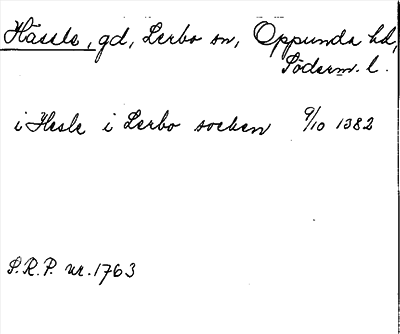 Hässle, gd, Lerbo sn, Oppunda hd,
Söderm. l.
i Hesle i Lerbo socken 9/10 1382
S.R.P. nr. 1763